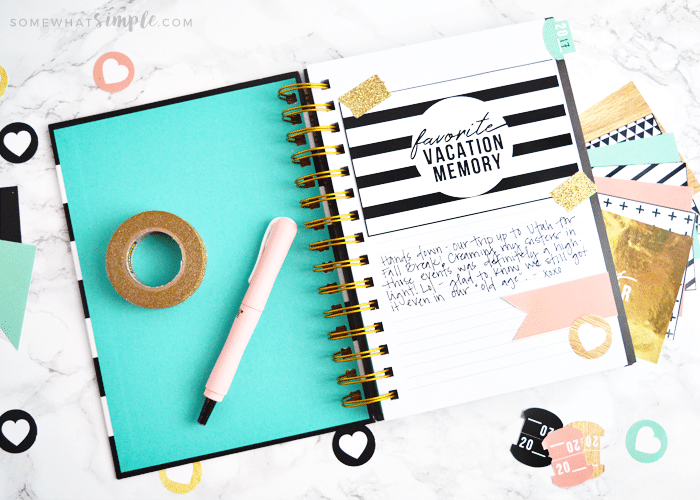 SOMEWHATSIMPLE.COM
2017
favorite
VACATION
MEMORY
Hands down - our trip up to Utah for
Fall Break! Creaming my sisters in
those events was definitely a high-
light! Lol - glad to know we still got
it even in our "old age". - xoxo
R
20
20
20